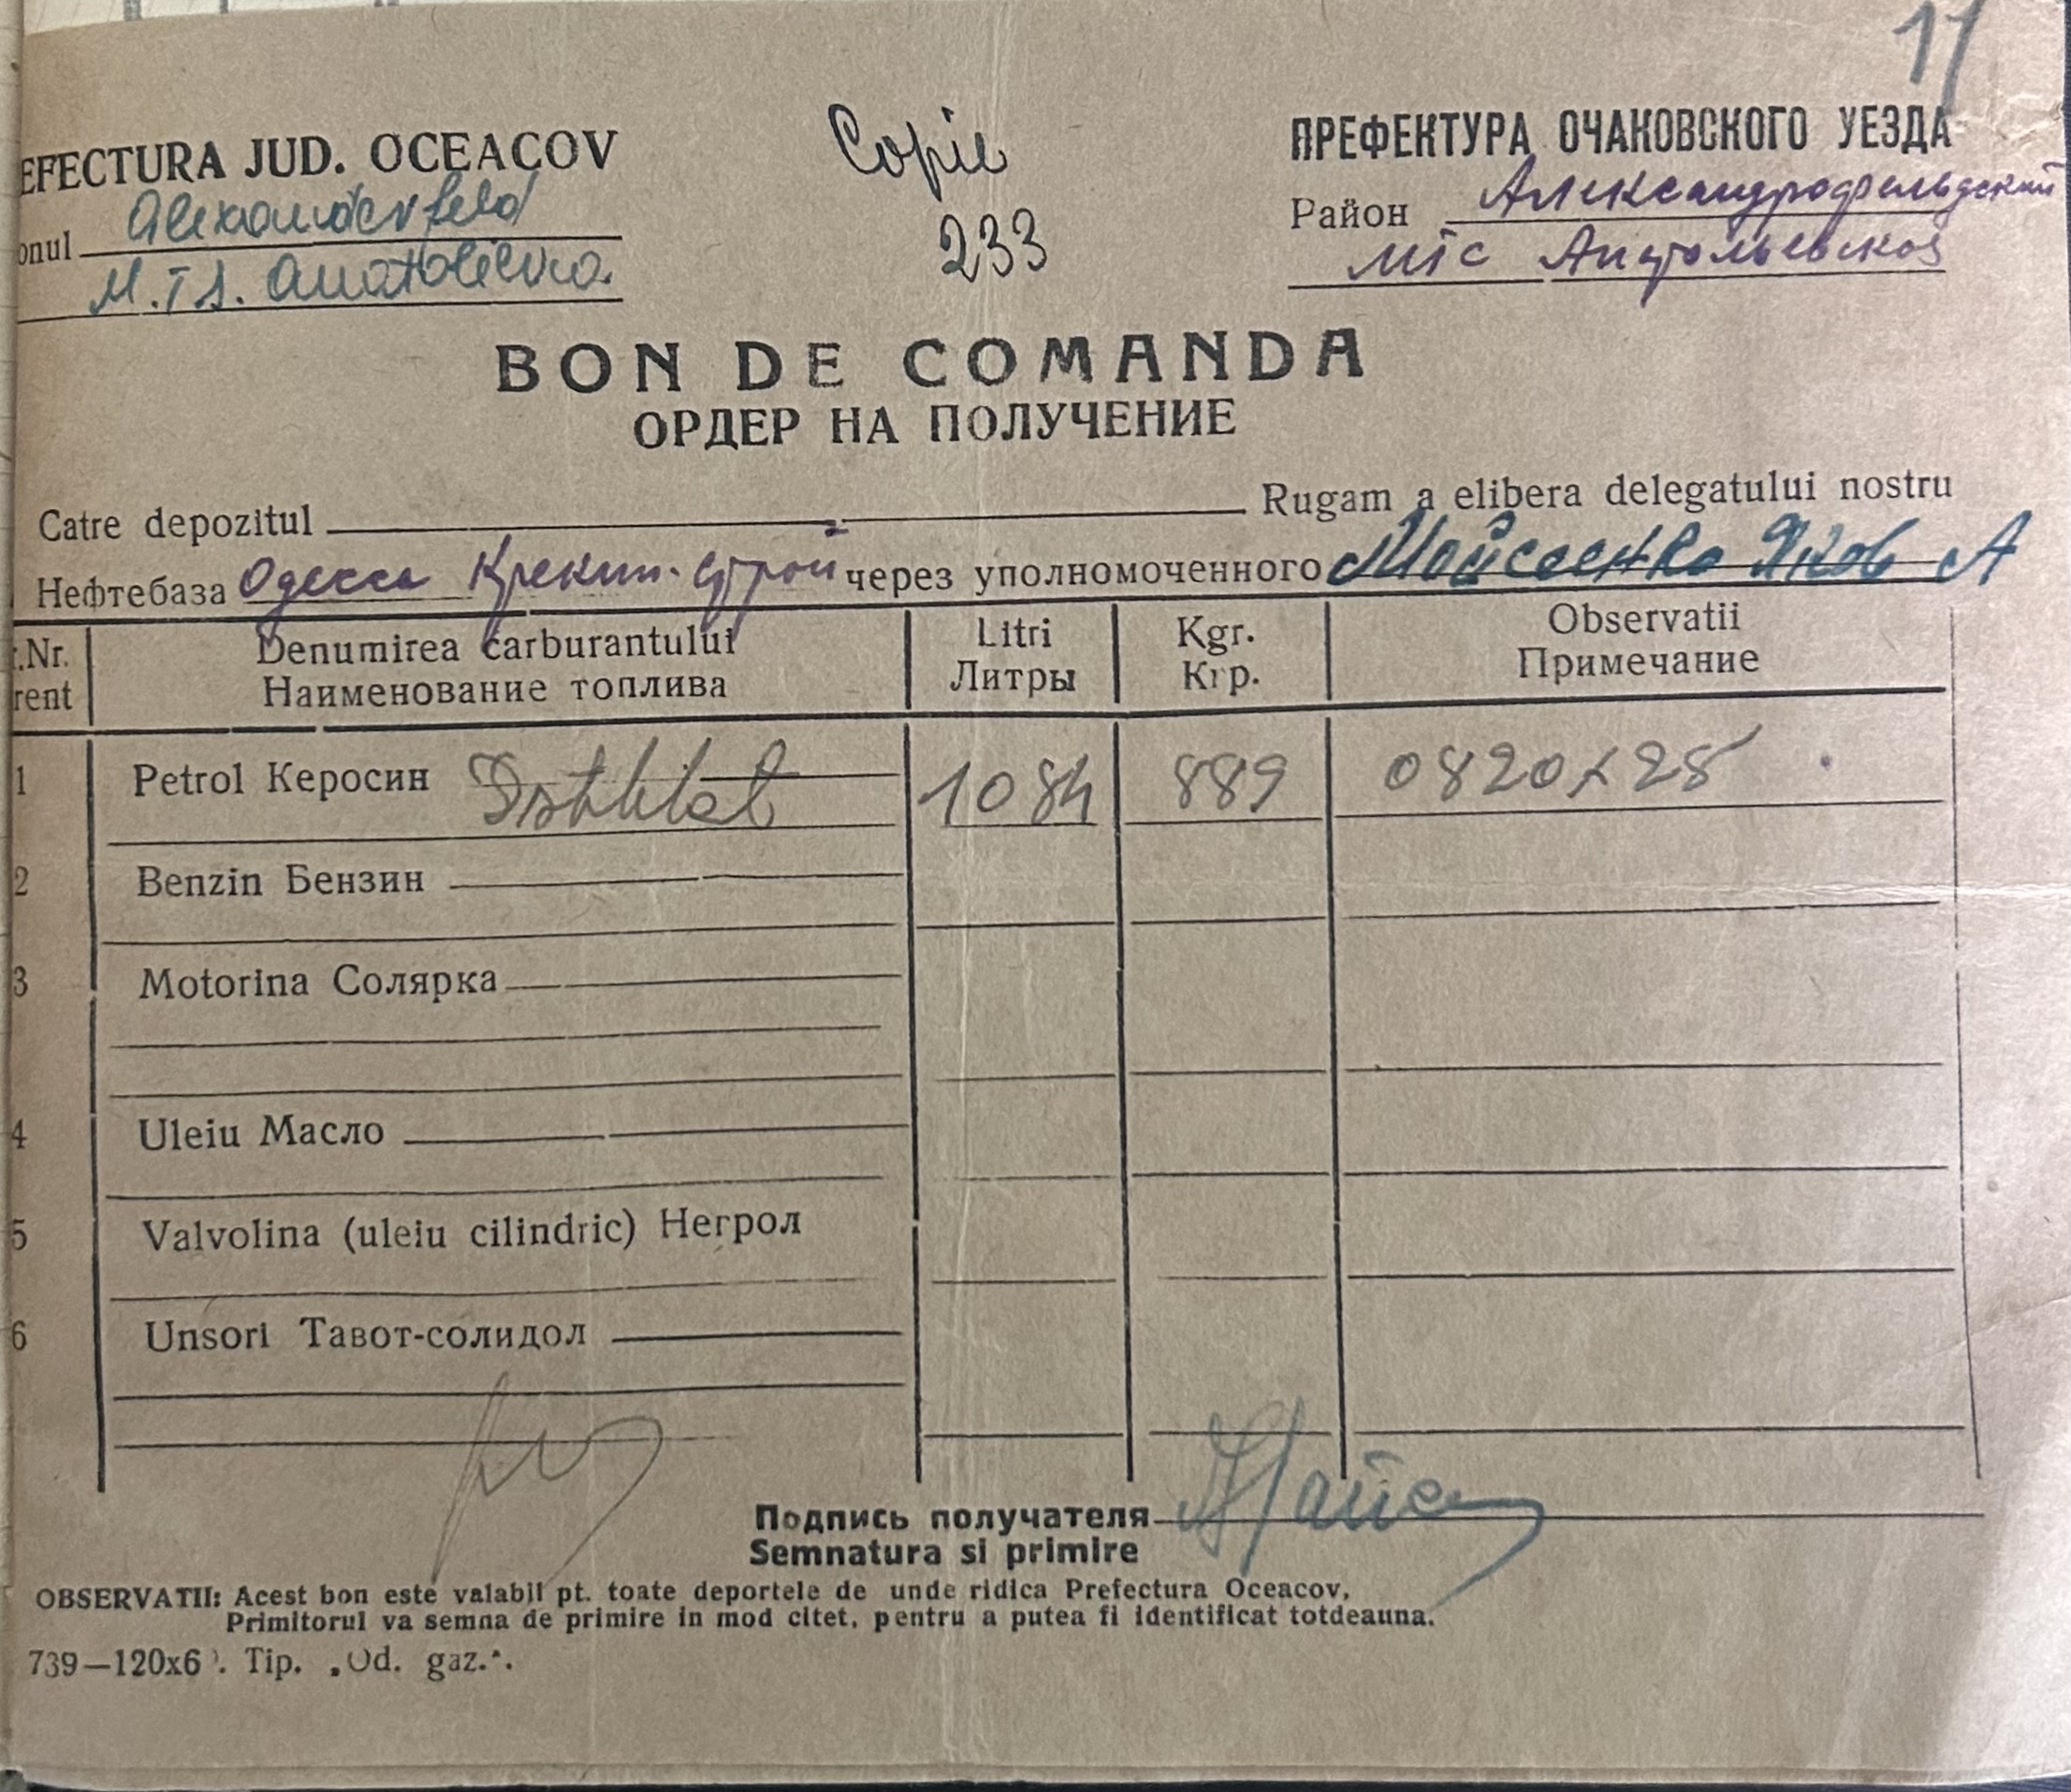 17
EFECTURA JUD. OCEACOV
onul Alexanderfeld
M.T.S. Anatolievca
Copie
233
ПРЕФЕКТУРА ОЧАКОВСКОГО УЕЗДА
Район Александрофельдский
мтс Анатольевской
BON DE COMANDA
ОРДЕР НА ПОЛУЧЕНИЕ
Catre depozitul Rugam a elibera delegatului nostru
Нефтебаза Одесса Крекин-строй через уполномоченного Мойсеенко Яков А
.Nr. rent Denumirea carburantului Наименование топлива Litri Литры Kgr. Кгр. Observatii Примечание
1 Petrol Керосин Distilat 1084 889 0820 x 28
2 Benzin Бензин
3 Motorina Солярка
4 Uleiu Масло
5 Valvolina (uleiu cilindric) Негрол
6 Unsori Тавот-солидол
Подпись получателя
Semnatura si primire
OBSERVATII: Acest bon este valabil pt. toate deportele de unde ridica Prefectura Oceacov,
Primitorul va semna de primire in mod citet, pentru a putea fi identificat totdeauna.
739—120x6 . Tip. „Od. gaz.".